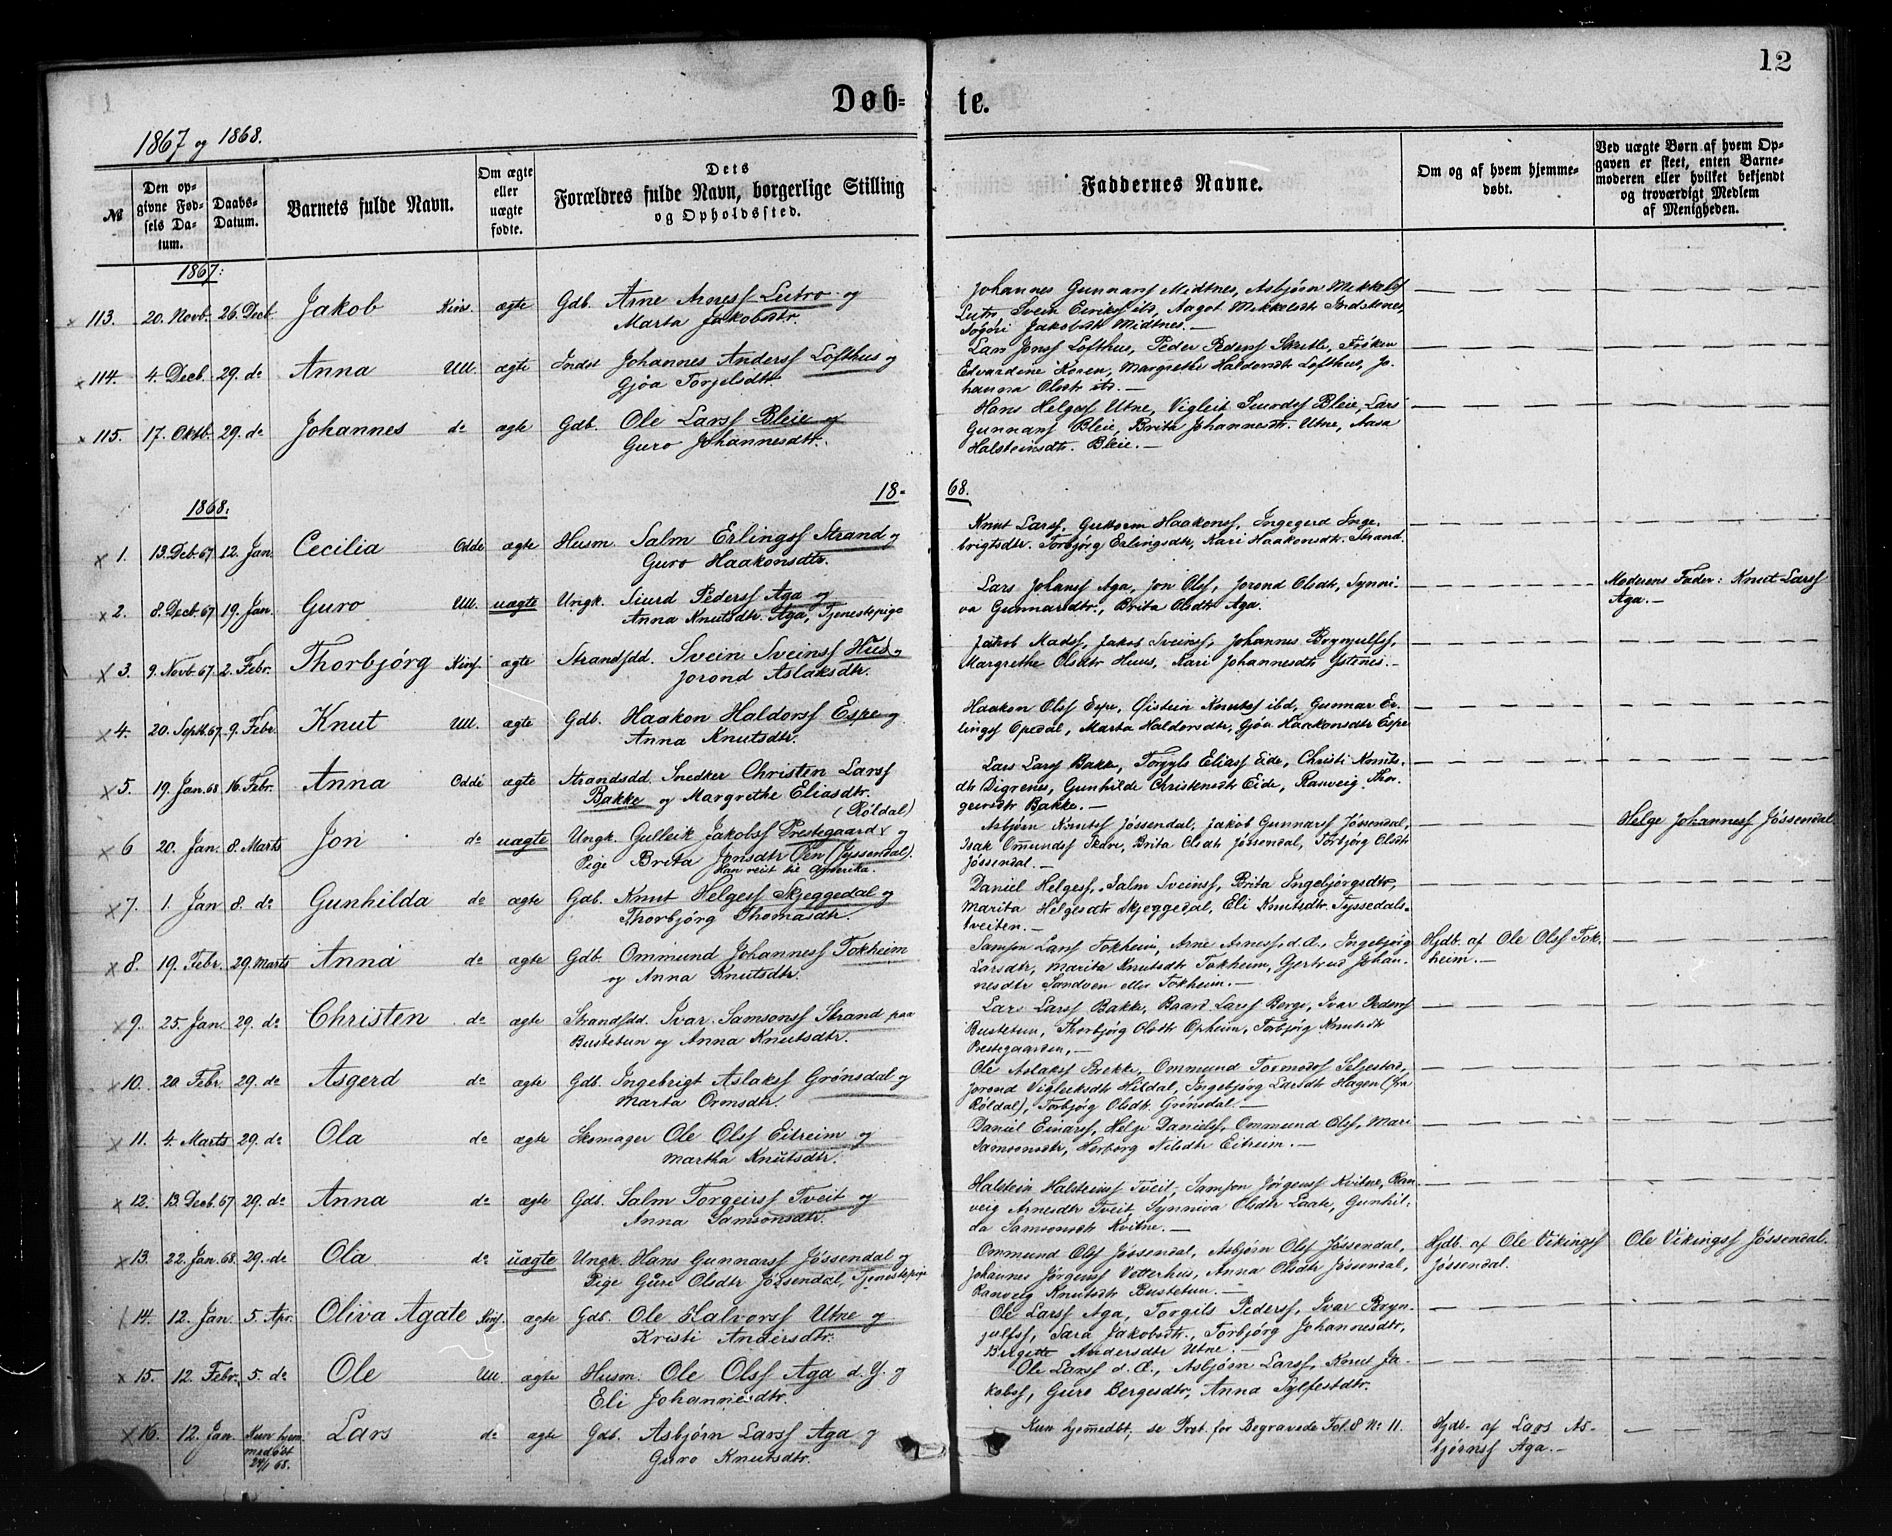 12
Døb- te.
1867 og 1868.
№
Den op-
givne Fød-
sels Da-
tum.
Daabs-
Datum.
Barnets fulde Navn.
Om ægte
eller
uægte
fødte.
Dets
Forældres fulde Navn, borgerlige Stilling
og Opholdssted.
Faddernes Navne.
Om og af hvem hjemme-
døbt.
Ved uægte Børn af hvem Op-
gaven er skeet, enten Barne-
moderen eller hvilket bekjendt
og troværdigt Medlem
af Menigheden.
1867:
113. 20. Novb. 26. Decb. Jakob Kins. ægte Gdb. Arne Arness Lutro og
Marta Jakobsdtr.
Johannes Gunnarss Midtnes, Asbjørn Mikkelss
Lutro Svein Eirikss ibd, Aagot Mikkelsdt Indstenes,
Jakobsdt Midtnes. —
114. 4. Decb. 29. do Anna Ull. ægte Indst Johannes Anderss Lofthus og
Gjøa Torgelsdtr
Lars Jonss Lofthus, Peder Pederss Skrette, Frøken
Edvardine Koren, Margrethe Haldorsdt Lofthus, Jo-
hanna Olsdtr ibd. —
115. 17. Oktb. 29. do Johannes do ægte Gdb. Ole Larss Bleie og
Guro Johannesdtr.
Hans Helgess Utne, Vigleit Siurdss Bleie, Lars
Gunnarss Bleie, Brita Johannesdt. Utne, Aasa
Halsteinsdtr. Bleie. —
18- 68.
1868:
1. 13. Deb. 67 12. Jan. Cecilia Odde ægte Husm. Salm Erlingss Strand og
Guro Haakonsdtr.
Knut Larss, Guttorm Haakonss, Ingegerd Inge-
brigtsdtr. Torbjørg Erlingsdtr, Kari Haakonsdt. Strand.
2. 8. Decb. 67 19. Jan. Guro Ull. uægte Ungk. Siurd Pederss Aga og
Anna Knutsdtr. Aga, Tjenestepige
Lars Johanss Aga, Jon Olss, Jorond Olsdt, Synni-
va Gunnarsdtr., Brita Olsdtr Aga.
Moderens Fader: Knut Larss
Aga. —
3. 9. Novb. 67. 2. Febr. Thorbjørg Kins. ægte Strandsdd. Svein Sveinss Hus og
Jorond Aslaksdtr.
Jakob Madss, Jakob Sveinss, Johannes Brynjulfss,
Margrethe Olsdtr Huus, Kari Johannesdt Ystenes. —
4. 20. Septb. 67. 9. Febr. Knut Ull. ægte Gdb. Haakon Haldorss Espe og
Anna Knutsdtr.
Haakon Olss Espe, Øistein Knutss ibd, Gunnar Er-
lingss Opedal, Marta Haldorsdtr, Gjøa Haakonsdtr Espe
5. 19. Jan. 68 16. Febr. Anna Odde ægte Strandsdd. Snedker Christen Larss
Bakke og Margrethe Eliasdtr.
Lars Larss Bakke, Torgyls Eliass Eide, Christi Knuts-
dtr Digrenes, Gunhilde Christensdt Eide, Ranveig Thor-
geirsdtr Bakke. —
6 20. Jan. 8. Marts Jon do uægte Ungk. Gulleik Jakobss Prestegaard og
(Røldal)
Pige Brita Jonsdtr Øen (Jyssendal).
Han reist til Amerika.
Asbjørn Knutss Jøssendal, Jakob Gunnarss Jøssendal,
Isak Omundss Skare, Brita Olsdt Jøssendal, Torbjørg Olsdt
Jøssendal. —
Helge Johanness Jøssendal
7. 1. Jan 8. do Gunhilda do ægte Gdb. Knut Helgess Skjeggedal og
Thorbjørg Thomasdtr.
Daniel Helgess, Salm Sveinss, Brita Ingebjørgsdtr,
Marita Helgesdtr Skjeggedal, Eli Knutsdtr. Tyssedals-
tveiten. —
8. 19. Febr. 29. Marts Anna do ægte Gdb. Ommund Johanness Tokheim
og Anna Knutsdtr.
Samson Larss Tokheim, Arne Arness, d.Æ., Ingebjørg
Larsdtr, Marita Knutsdtr Tokheim, Gjertrud Johan-
nesdtr Sandven eller Tokheim. —
Hjdb. af Ole Olss Tok-
heim. —
9. 25. Jan. 29. do Christen do ægte Strandsdd. Ivar Samsonss Strand paa
Bustetun og Anna Knutsdtr.
Lars Larss Bakke, Baard Larss Berge, Ivar Pederss
Bustetun, Thorbjørg Olsdt Opheim, Torbjørg Knutsdt
Prestegaarden, —
10. 20. Febr. 29. do Asgerd do ægte Gdb. Ingebrigt Aslakss Grønsdal og
Marta Ormsdtr.
Ole Aslakss Brekke, Ommund Tormodss Seljestad,
Jorond Vigleiksdt Hildal, Ingebjørg Larsdt Hagen (fra
Røldal), Torbjørg Olsdt. Grønsdal. —
11. 4. Marts 29. do Ola do ægte Skomager Ole Olss Eitreim og
Martha Knutsdtr.
Daniel Einarss, Helge Danielss, Ommund Olss, Mari
Samsonsdtr, Herborg Nilsdtr Eitreim. —
12. 13. Decb. 67 29. do Anna do ægte Gdb. Salm Torgeirss Tveit og
Anna Samsonsdtr.
Halstein Halsteinss Tveit, Samson Jørgenss Kvitne, Ran-
veig Arnesdtr Tveit, Synniva Olsdtr Laate, Gunhil-
da Samsonsdt Kvitne. —
13. 22 Jan. 68. 29. do Ola do uægte Ungk. Hans Gunnarss Jøssendal og
Pige Guri Olsdtr Jøssendal, Tjenestepige
Ommund Olss Jøssendal, Asbjørn Olss Jøssendal,
Johannes Jørgenss Vetterhus, Anna Olsdtr Jøssendal,
Ranveig Knutsdt Bustetun. —
Hjdb. af Ole Vikingss
Jøssendal.
Ole Vikingss Jøssendal.
14. 12. Jan 5. Apr. Oliva Agate Kins. ægte Gdb. Ole Halvorss Utne og
Kristi Andersdtr.
Ole Larss Aga, Torgils Pederss, Ivar Bryn-
julfss, Sara Jakobsdtr., Torbjørg Johannesdtr,
Birgitte Andersdtr Utne. —
15. 12. Febr. 5. do Ole Ull. ægte Husm. Ole Olss Aga d. Y. og
Eli Johannesdtr.
Ole Larss d. Æ., Asbjørn Larss, Knut Ja-
kobss, Guro Bergesdtr, Anna Sylfestdtr.
16. 12. Jan. Kun hjem-
medøbt
24/1 68. Lars do ægte Gdb. Asbjørn Larss Aga og
Guro Knutsdtr.
Kun hjemmedbt, se Prot. for Begravede Fol. 8 No 11.
Hjdb. af Lars As-
bjørnss Aga. —